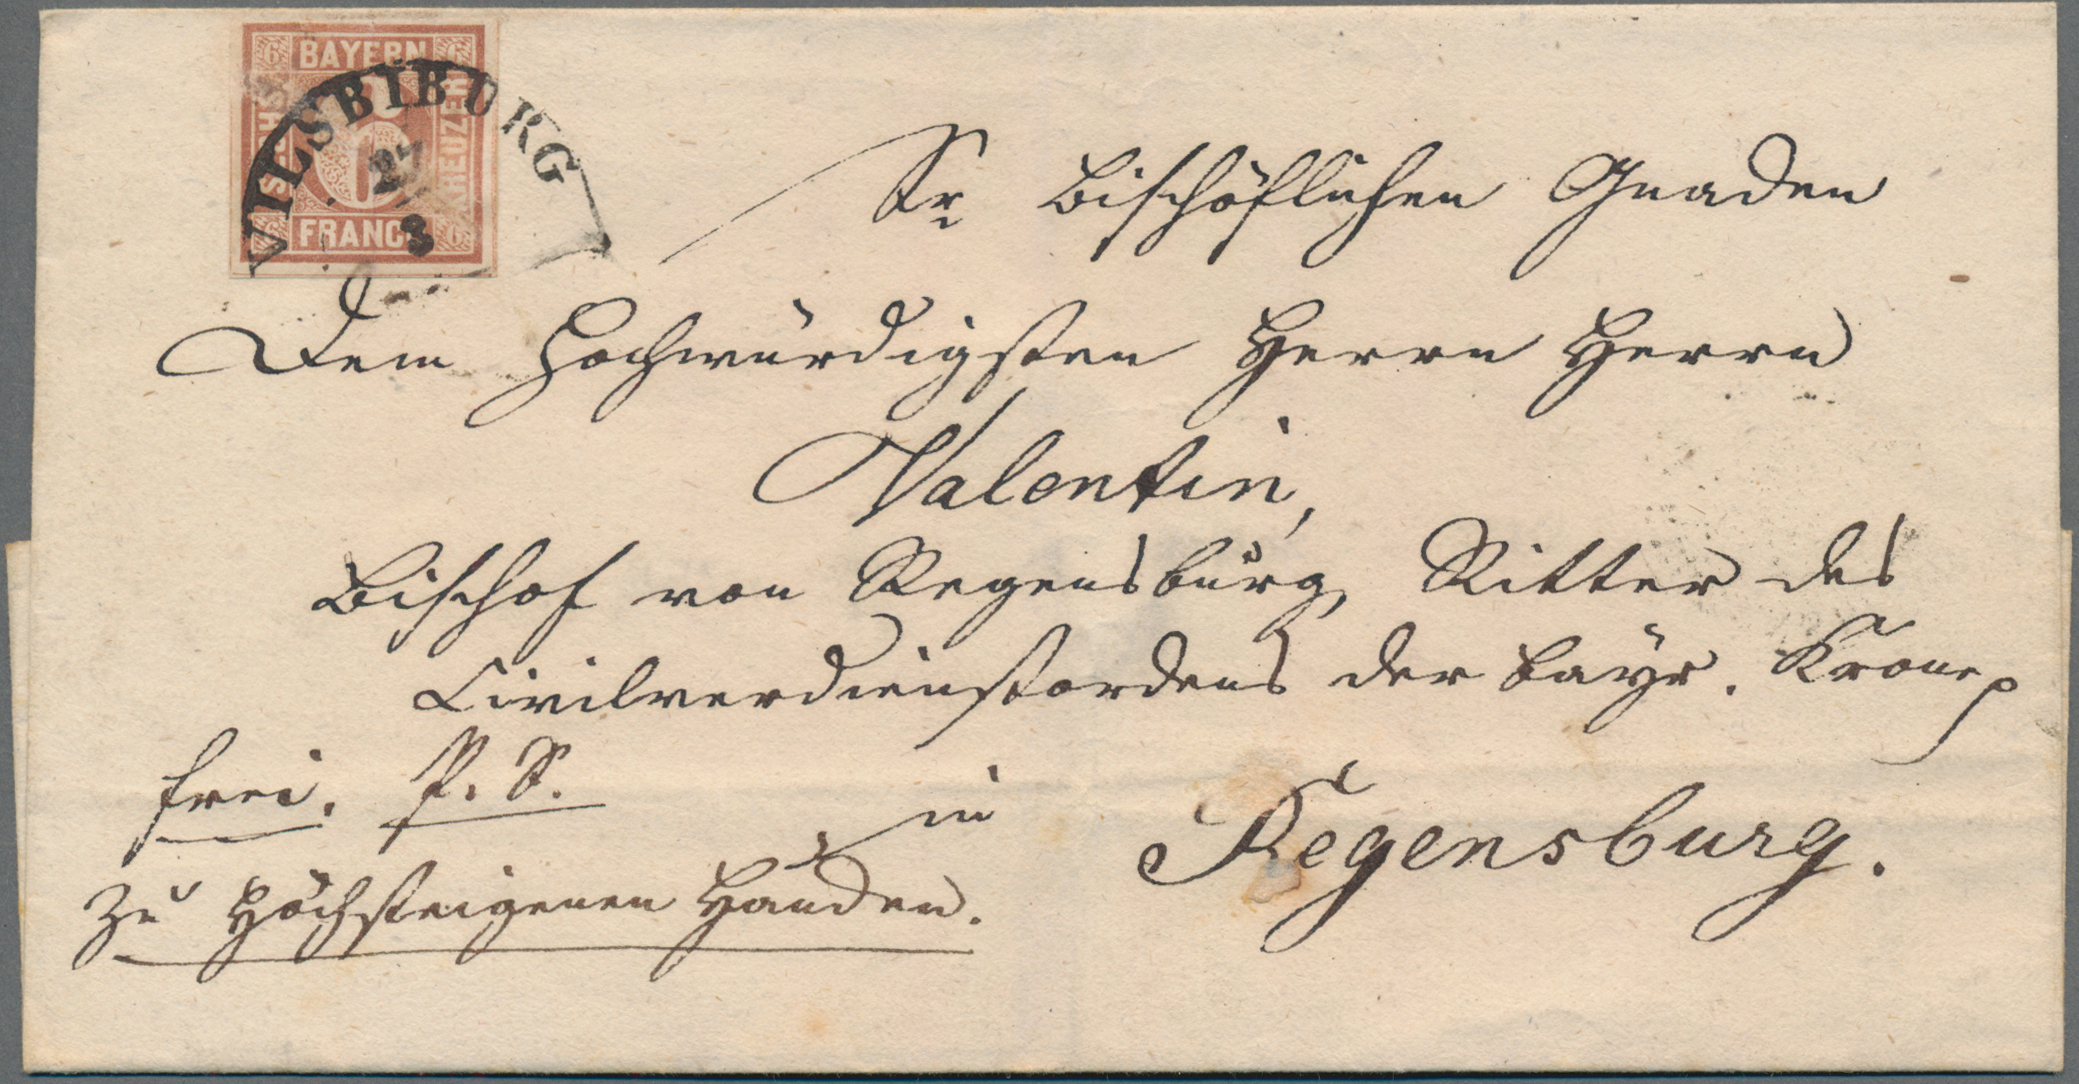 6 BAYERN 6
SECHS
KREUZER
6
6 FRANCO 6
VILSBIBURG
27
8
Sr. Bischöflichen Gnaden
Dem Hochwürdigsten Herrn Herrn
Valentin,
Bischof von Regensburg, Ritter des
Civilverdienstordens der bayr. Krone p
frei. P. S.
in Regensburg.
zu Höchsteigenen Händen.